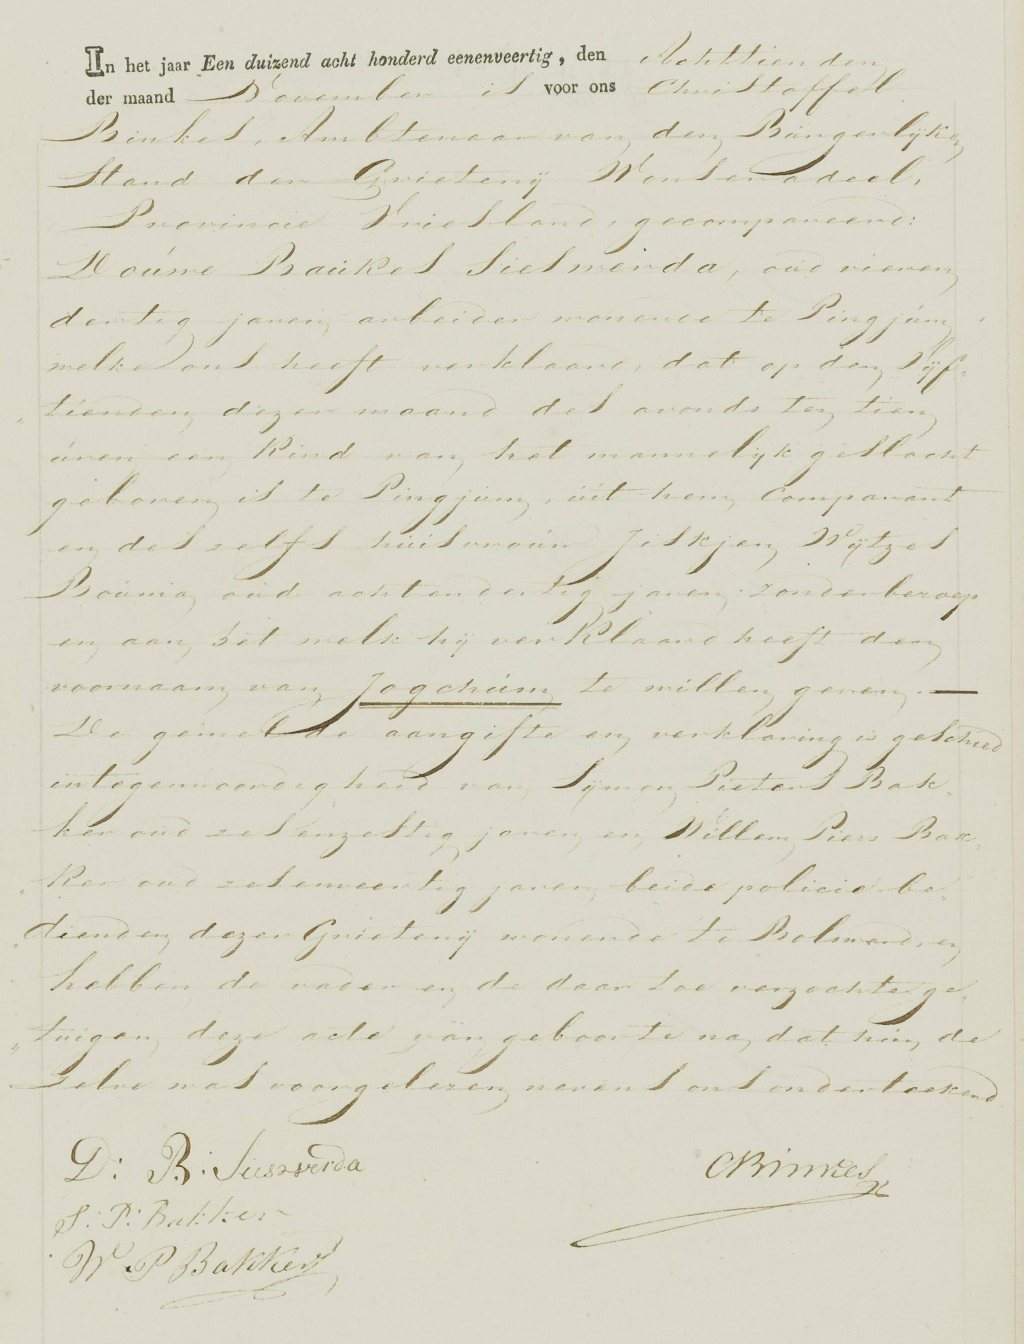 In het jaar Een duizend acht honderd eenenveertig, den Achttienden
der maand November is voor ons Christoffel
Binkes, Ambtenaar van den Búrgerlijken
Stand der Grietenij Wonseradeel,
Provincie Vriesland, gecompareerd:
Doúwe Baúkes Sieswerda, oúd vieren
dertig jaren, arbeider wonende te Pingjúm
welke ons heeft verklaard, dat op den Vijf„
„tienden dezer maand des avonds ten tien
úren een Kind van het mannelijk geslacht
geboren is te Pingjúm, úit hem Comparant
en des zelfs húisvroúw Jiskjen Wijtzes
Boúma oúd achtendertig jaren zonder beroep
en aan het welk hij verklaard heeft den
voornaam van Jogchúm te willen geven. —
De gemelde aangifte en verklaring is geschied
in tegenwoordigheid van Sijmon Pieters Bak
ker oúd zes enzestig jaren en Willem Piers Bak„
„ker oúd zesenveertig jaren, beide policie be„
„dienden dezer Grietenij wonende te Bolsward, en
hebben de vader en de daar toe verzochte ge„
„túigen deze acte van geboorte na dat hún de
zelve was voorgelezen nevens ons onderteekend
D: B: Sieswerda
CBinkes
S: P: Bakker
W P Bakker